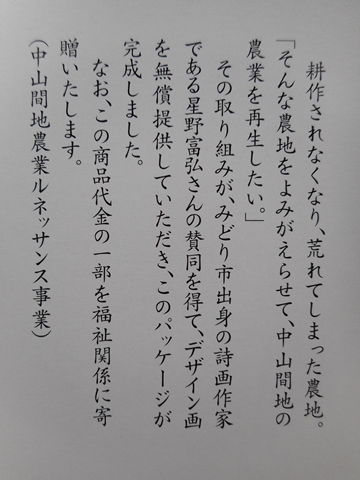 耕作されなくなり、荒れてしまった農地。
「そんな農地をよみがえらせて、中山間地の
農業を再生したい。」
その取り組みが、みどり市出身の詩画作家
である星野富弘さんの賛同を得て、デザイン画
を無償提供していただき、このパッケージが
完成しました。
なお、この商品代金の一部を福祉関係に寄
贈いたします。
(中山間地農業ルネッサンス事業)